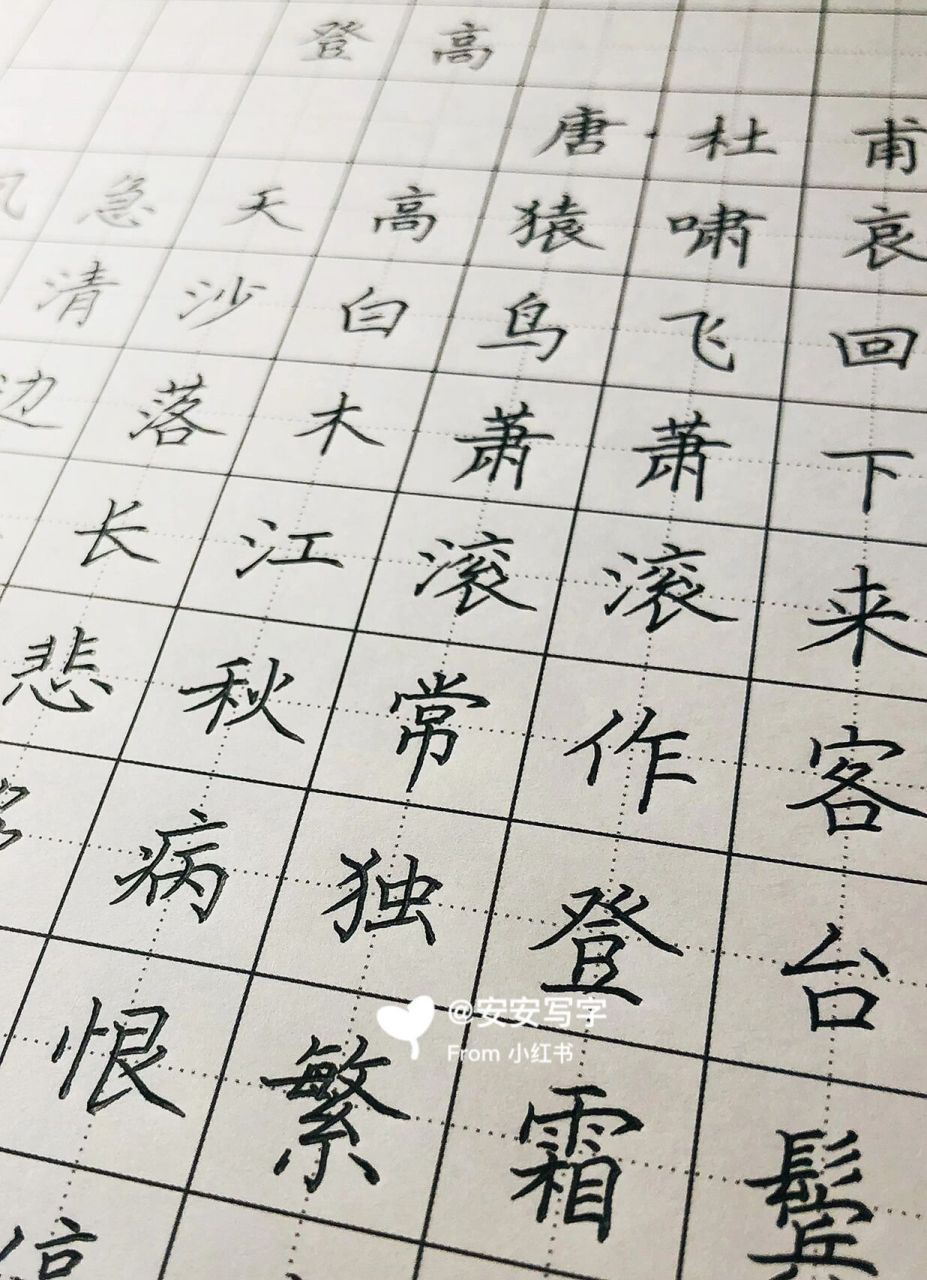 登高
唐·杜甫
风急天高猿啸哀
清沙白鸟飞回
边落木萧萧下
长江滚滚来
悲秋常作客
病独登台
恨繁霜鬓
停
@安安写字
From 小红书